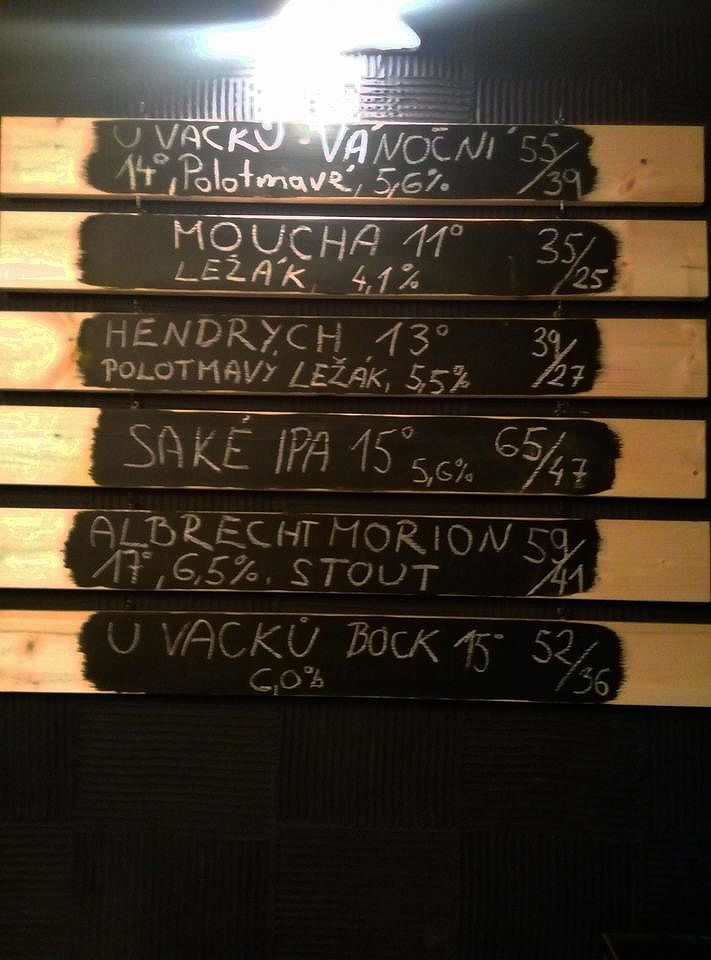 U VACKŮ VÁNOČNÍ 55/39
14°, Polotmavé, 5,6%
MOUCHA 11° 35/25
LEŽÁK, 4,1%
HENDRYCH 13° 39/27
POLOTMAVÝ LEŽÁK, 5,5%
SAKÉ IPA 15° 5,6% 65/47
ALBRECHT MORION 59/41
17°, 6,5%. STOUT
U VACKŮ BOCK 15° 52/36
6,0%